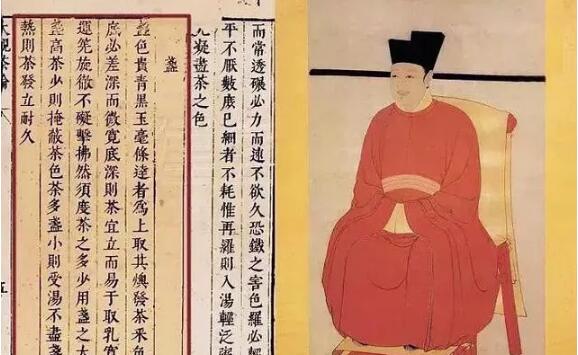 而常透碾必力而速不欲久恐鐵之害色羅必輕
平不厭數庶已細者不耗惟再羅則入湯輕泛粥
光凝盡茶之色
盞
盞色貴青黑玉毫條達者為上取其燠發茶采色
底必差深而微寬底深則茶宜立而易于取乳寬
運筅旋徹不礙擊拂然須度茶之多少用盞之大
盞高茶少則掩蔽茶色茶多盞小則受湯不盡盞
熱則茶發立耐久
大觀茶論
五